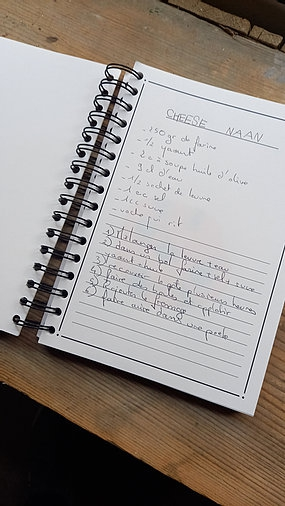 CHEESE NAAN
- 250 gr de farine
- 1/2 yaourt
- 2 c à soupe huile d'olive
- 9 cl d'eau
- 1/2 sachet de levure
- 1 cc sel
- 1 cc sucre
- vache qui rit
1) Mélanger la levure + eau
2) dans un bol farine + sel + sucre
3) yaourt + huile
4) recouvrir la pâte plusieurs heures
5) faire des boules et applatir
6) Rajouter le fromage
faire cuire dans une poele